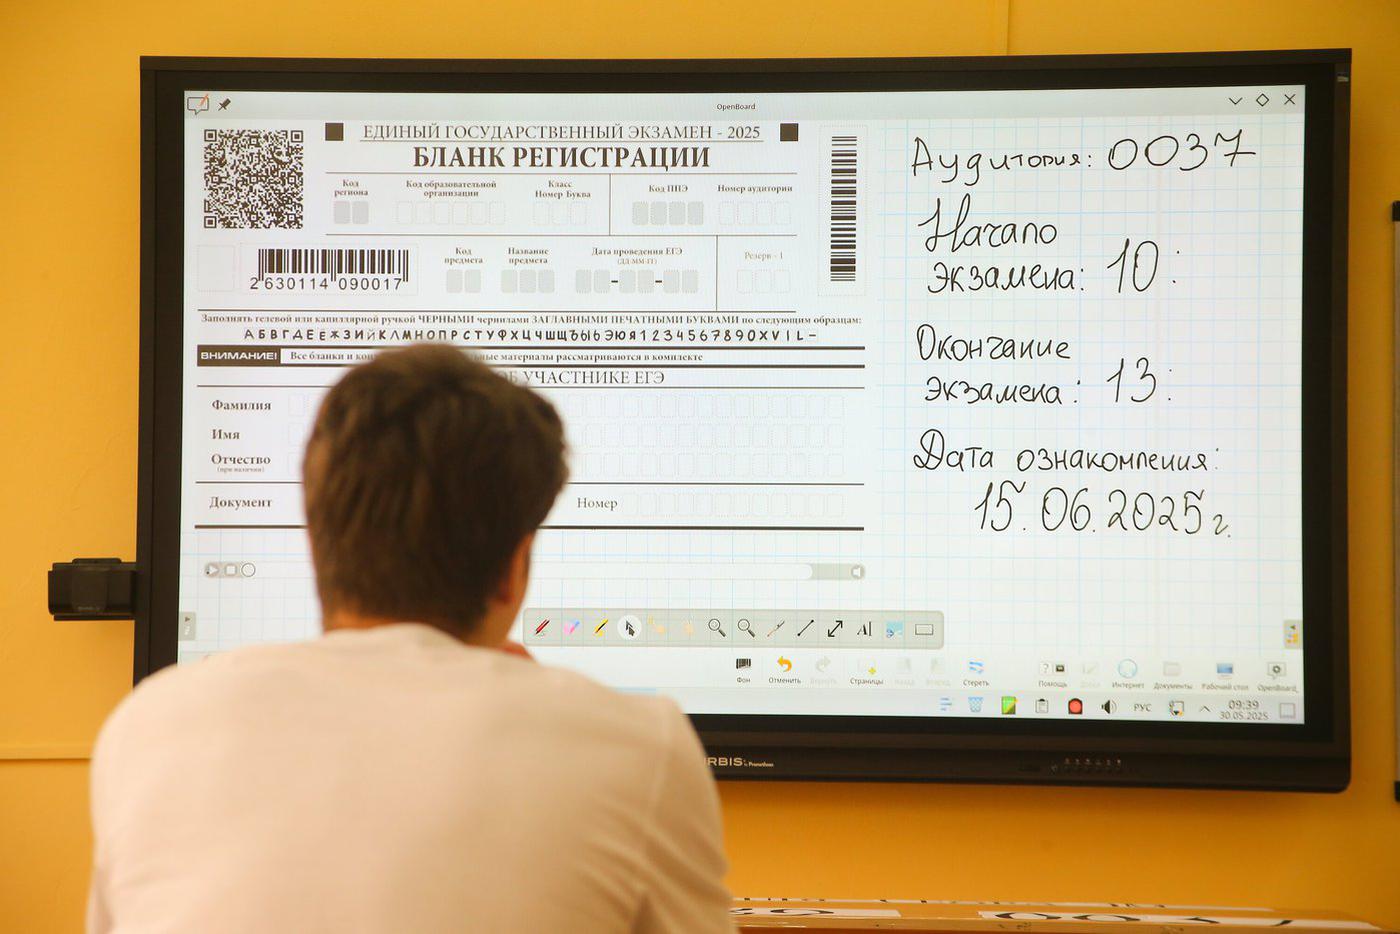 OpenBoard
ЕДИНЫЙ ГОСУДАРСТВЕННЫЙ ЭКЗАМЕН - 2025
БЛАНК РЕГИСТРАЦИИ
Код региона
Код образовательной организации
Класс
Номер Буква
Код ППЭ
Номер аудитории
2 630114 090017
Код предмета
Название предмета
Дата проведения ЕГЭ
(ДД-ММ-ГГ)
Резерв - 1
Заполнять гелевой или капиллярной ручкой ЧЕРНЫМИ чернилами ЗАГЛАВНЫМИ ПЕЧАТНЫМИ БУКВАМИ по следующим образцам:
АБВГДЕЁЖЗИЙКЛМНОПРСТУФХЦЧШЩЪЫЬЭЮЯ1234567890XVIL-
ВНИМАНИЕ! Все бланки и материалы рассматриваются в комплекте
ОБ УЧАСТНИКЕ ЕГЭ
Фамилия
Имя
Отчество
(при наличии)
Документ
Номер
Аудитория: 0037
Начало
экзамена: 10:
Окончание
экзамена: 13:
Дата ознакомления:
15.06.2025г.
Фон
Отменить
Вернуть
Страницы
Назад
Вперед
Стереть
Помощь
Интернет
Документы
Рабочий стол
OpenBoard
РУС
09:39
30.05.2025
RBIS by Promethean